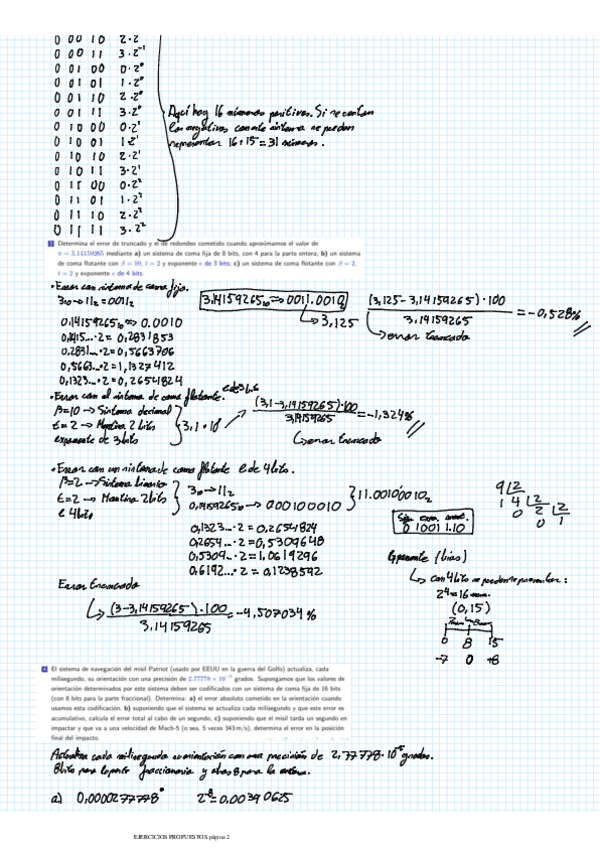 0 00 10 2·2
0 00 11 3·2⁻¹
0 01 00 0·2⁰
0 01 01 1·2⁰
0 01 10 2·2⁰
0 01 11 3·2⁰
0 10 00 0·2¹
0 10 01 1·2¹
0 10 10 2·2¹
0 10 11 3·2¹
0 11 00 0·2²
0 11 01 1·2²
0 11 10 2·2²
0 11 11 3·2²
Aquí hay 16 números positivos. Si se cuentan
los negativos con este sistema se pueden
representar 16+15=31 números.
Determina el error de truncado y el de redondeo cometido cuando aproximamos el valor de
π = 3.14159265 mediante a) un sistema de coma fija de 8 bits, con 4 para la parte entera; b) un sistema
de coma flotante con β = 10, t = 2 y exponente e de 3 bits; c) un sistema de coma flotante con β = 2,
t = 2 y exponente e de 4 bits.
• Error con sistema de coma fija.
3₁₀→11₂=0011₂
3,14159265₁₀ => 0011.0010₂
→3,125
(3,125-3,14159265)·100
3,14159265
=-0,528%
→error truncado
0,14159265₁₀ => 0.0010
0,1415...·2=0,2831853
0.2831...·2=0,5663706
0,5663...·2=1,1327412
0,1323...·2=0,2654824
• Error con el sistema de coma flotante.
e de 3 bits
β=10 → Sistema decimal
t=2 → Mantisa 2 bits
exponente de 3 bits
3,1·10⁰
(3,1-3,14159265)·100
3,14159265
=-1,324%
→error truncado
• Error con un sistema de coma flotante e de 4 bits.
β=2 → Sistema binario
t=2 → Mantisa 2 bits
e 4 bits
3₁₀→11₂
0,14159265₁₀ → 0.00100010
11.00100010₂
0,1323...·2=0,2654824
0,2654...·2=0,5309648
0,5309...·2=1,0619296
0,6192...·2=0,1238592
Sig. expo. mant.
0 1001 1.10
9 2
1 4 2
0 2 2
0 1
Exponente (bias)
→ con 4 bits se pueden representar:
2⁴=16 num.
(0,15)
0 8 15
-7 0 +8
Error truncado
(3-3,14159265)·100
3,14159265
=-4,507034%
El sistema de navegación del misil Patriot (usado por EEUU en la guerra del Golfo) actualiza, cada
milisegundo, su orientación con una precisión de 2.77778 × 10⁻⁵ grados. Supongamos que los valores de
orientación determinados por este sistema deben ser codificados con un sistema de coma fija de 16 bits
(con 8 bits para la parte fraccional). Determina: a) el error absoluto cometido en la orientación cuando
usamos esta codificación, b) suponiendo que el sistema se actualiza cada milisegundo y que este error es
acumulativo, calcula el error total al cabo de un segundo, c) suponiendo que el misil tarda un segundo en
impactar y que va a una velocidad de Mach-5 (o sea, 5 veces 343 m/s), determina el error en la posición
final del impacto.
Actualiza cada milisegundo su orientación con una precisión de 2,77778·10⁻⁵ grados.
8 bits para la parte fraccionaria y otros 8 para la entera.
a) 0,0000277778° 2⁻⁸=0,00390625
EJERCICIOS PROPUESTOS página 2